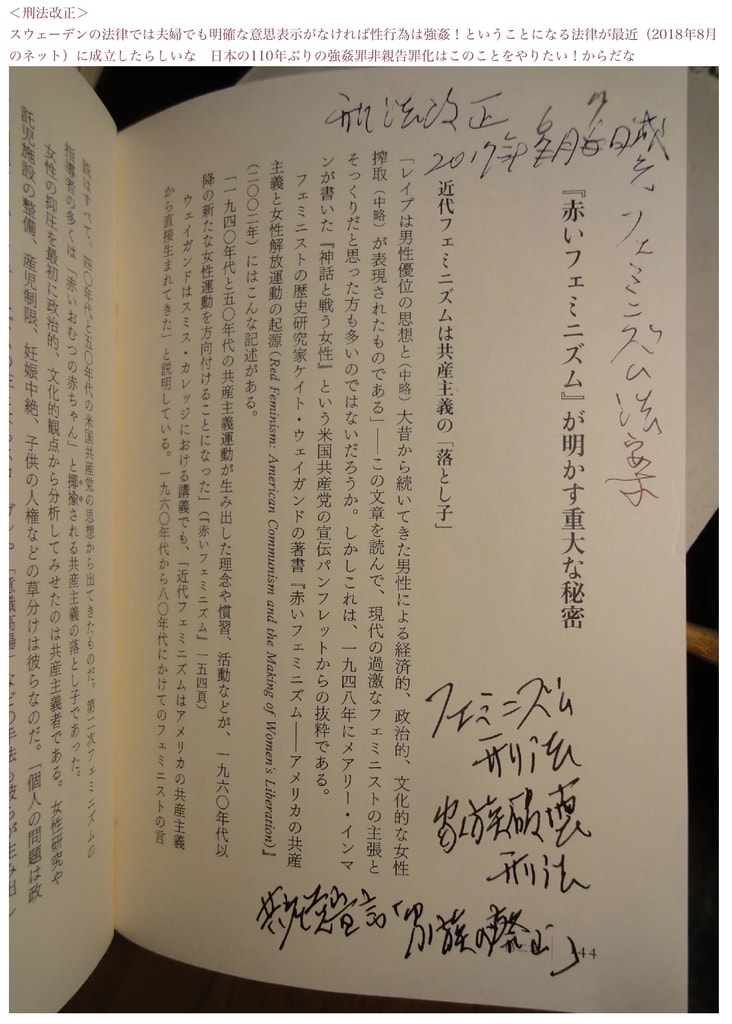 ＜刑法改正＞
スウェーデンの法律では夫婦でも明確な意思表示がなければ性行為は強姦！ということになる法律が最近（2018年8月
のネット）に成立したらしいな　日本の110年ぶりの強姦罪非親告罪化はこのことをやりたい！からだな
刑法改正
2017年
フェミニズム法案
『赤いフェミニズム』が明かす重大な秘密
近代フェミニズムは共産主義の「落とし子」
「レイプは男性優位の思想と（中略）大昔から続いてきた男性による経済的、政治的、文化的な女性
搾取（中略）が表現されたものである」――この文章を読んで、現代の過激なフェミニストの主張と
そっくりだと思った方も多いのではないだろうか。しかしこれは、一九四八年にメアリー・インマ
ンが書いた『神話と戦う女性』という米国共産党の宣伝パンフレットからの抜粋である。
フェミニストの歴史研究家ケイト・ウェイガンドの著書『赤いフェミニズム――アメリカの共産
主義と女性解放運動の起源(Red Feminism: American Communism and the Making of Women's Liberation)』
（二〇〇二年）にはこんな記述がある。
「一九四〇年代と五〇年代の共産主義運動が生み出した理念や慣習、活動などが、一九六〇年代以
降の新たな女性運動を方向付けることになった」（『赤いフェミニズム』一五四頁）
ウェイガンドはスミス・カレッジにおける講義でも、「近代フェミニズムはアメリカの共産主義
から直接生まれてきた」と説明している。一九六〇年代から八〇年代にかけてのフェミニストの言
説はすべて、四〇年代と五〇年代の米国共産党の思想から出てきたものだ。第二次フェミニズムの
指導者の多くは「赤いおむつの赤ちゃん」と揶揄される共産主義の落とし子であった。
女性の抑圧を最初に政治的、文化的観点から分析してみせたのは共産主義者である。女性研究や
託児施設の整備、産児制限、妊娠中絶、子供の人権などの草分けは彼らなのだ。「個人の問題は政
フェミニズム
刑法
家族破壊
刑法
共産党宣言「家族の廃止」
44